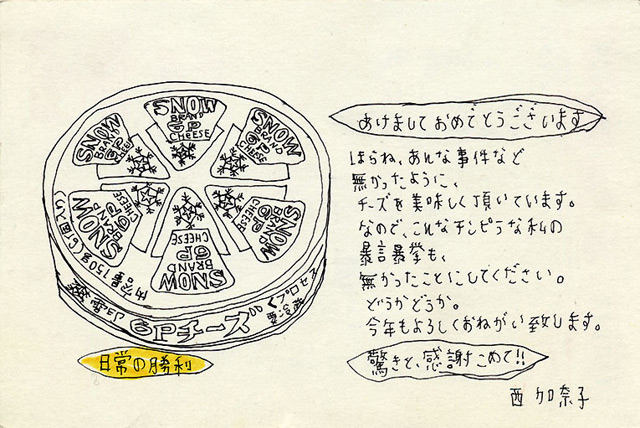 SNOW
BRAND
6P
CHEESE
SNOW
BRAND
6P
CHEESE
SNOW
BRAND
6P
CHEESE
SNOW
BRAND
6P
CHEESE
SNOW
BRAND
6P
CHEESE
SNOW
BRAND
6P
CHEESE
内容量150g(6個入り)
6Pチーズ
プロセス
日常の勝利
あけましておめでとうございます
ほらね、あんな事件など
無かったように、
チーズを美味しく頂いています。
なので、こんなチンピラな私の
暴言暴挙も、
無かったことにしてください。
どうかどうか。
今年もよろしくおねがい致します。
驚きと、感謝こめて!!
西 加奈子